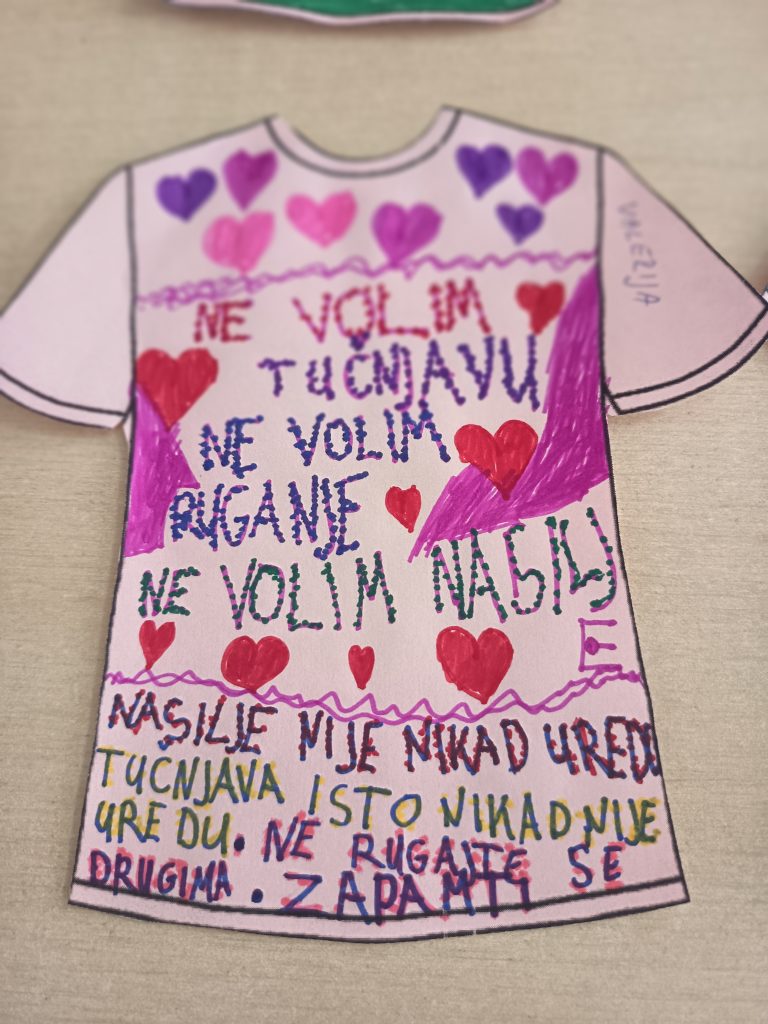 VALERIJA
NE VOLIM
TUČNJAVU
NE VOLIM
RUGANJE
NE VOLIM NASILJ
E
NASILJE NIJE NIKAD UREDU
TUCNJAVA ISTO NIKAD NIJE
UREDU. NE RUGAJTE SE
DRUGIMA. ZAPAMTI